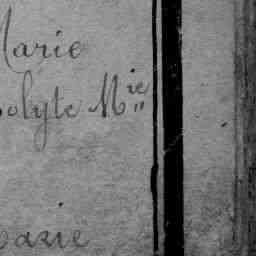 Marie
olyte Mie
arie